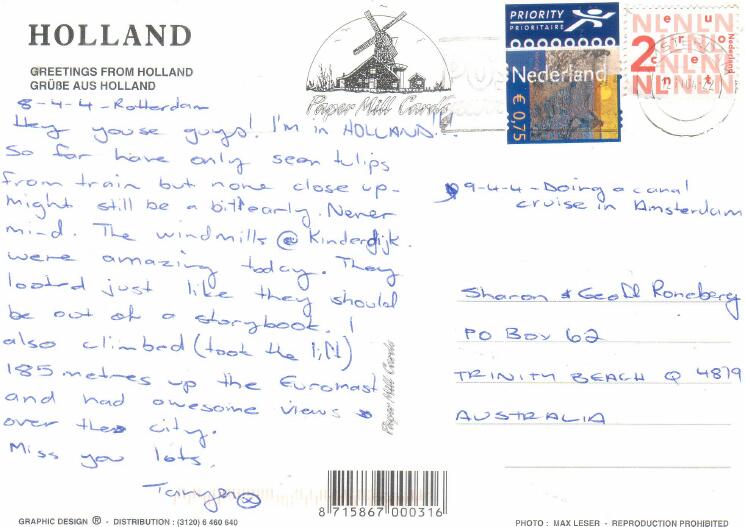 HOLLAND
GREETINGS FROM HOLLAND
GRÜBE AUS HOLLAND
8-4-4-Rotterdam
Hey youse guys! I'm in HOLLAND!!
So far have only seen tulips
from train but none close up-
might still be a bit early. Never
mind. The windmills @ Kinderdijk
were amazing today. They
looked just like they should
be out of a storybook. I
also climbed (took the lift)
185 metres up the Euromast
and had awesome views
over the city.
Miss you lots,
Tanyer x
GRAPHIC DESIGN ® - DISTRIBUTION : (3120) 6 460 640
Paper Mill Cards
Paper Mill Cards
8 715867 000316
PRIORITY
PRIORITAIRE
Nederland
€ 0,75
NLNLN
euro
2
cent
Nederland
9-4-4-Doing a canal
cruise in Amsterdam
Sharon & Geoff Roneberg
PO Box 62
TRINITY BEACH Q 4879
AUSTRALIA
PHOTO : MAX LESER - REPRODUCTION PROHIBITED